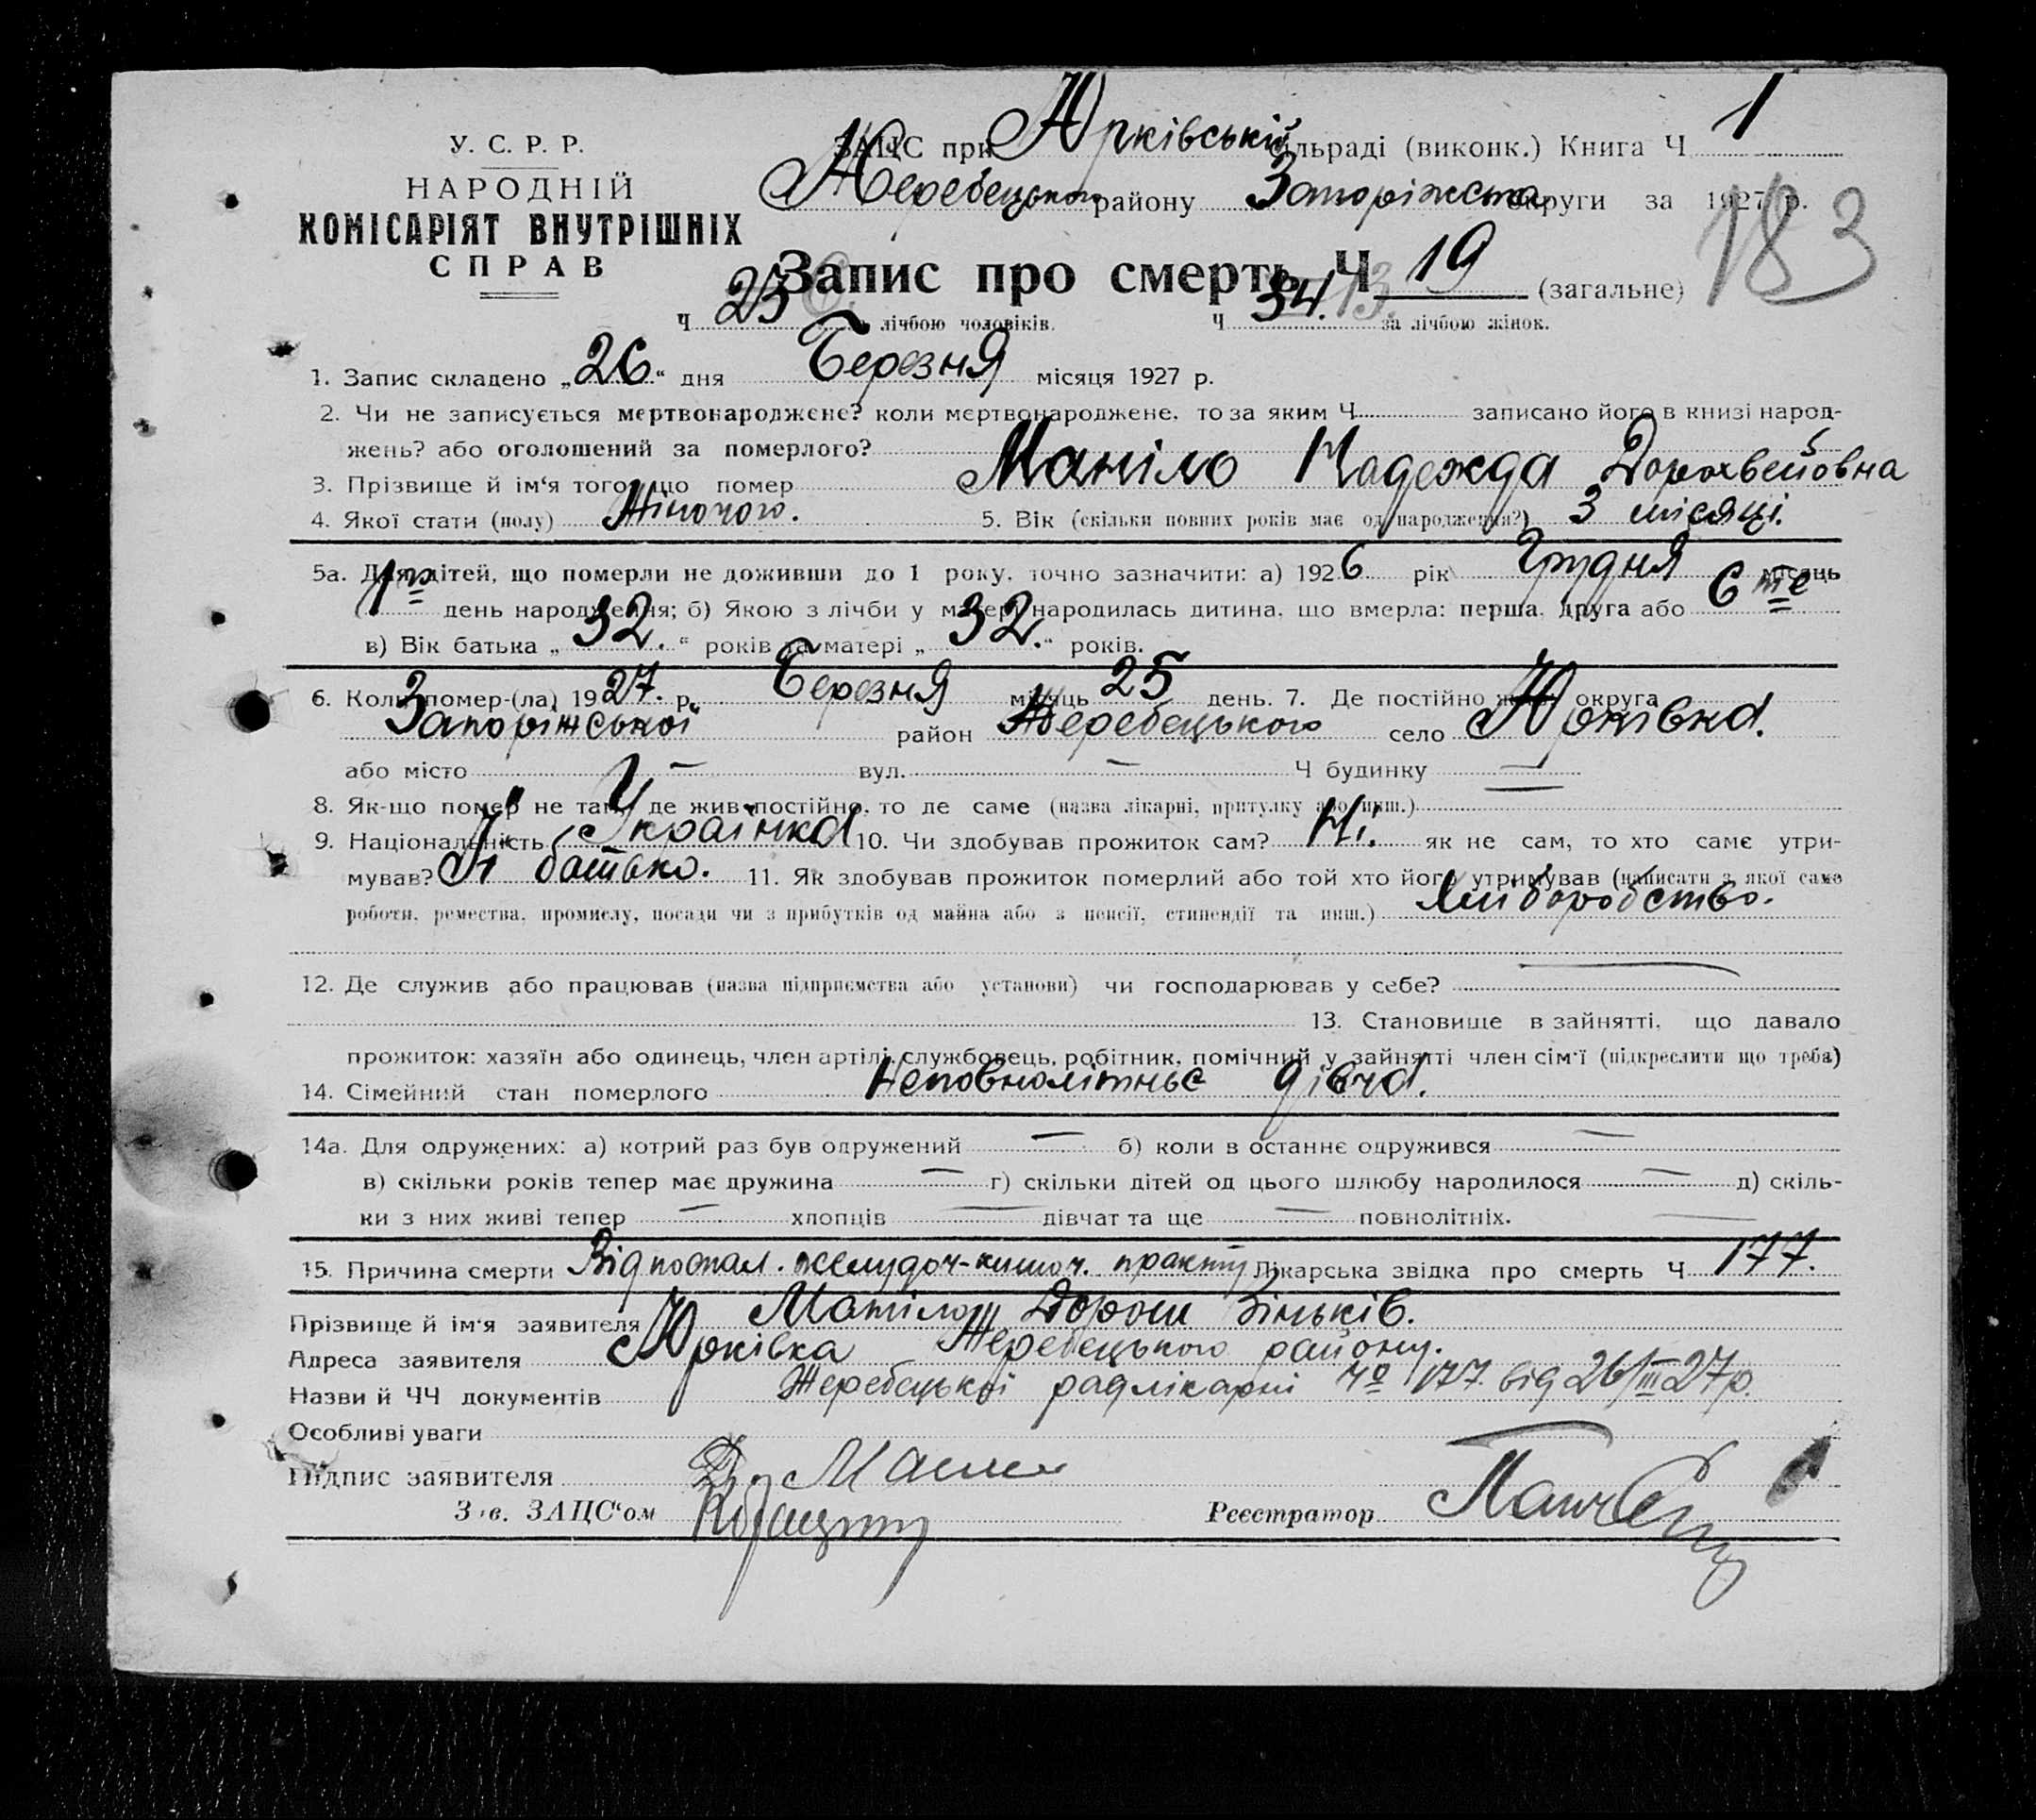 У. С. Р. Р.
НАРОДНІЙ
КОМІСАРІЯТ ВНУТРІШНІХ
СПРАВ
ЗАЦС при Юрківській сільраді (виконк.) Книга Ч 1
Жеребецького району Запоріжська округи за 1927 р.
183
Запис про смерть Ч 19 (загальне)
Ч 25 лічбою чоловіків. Ч 34. 13. за лічбою жінок.
1. Запис складено „26“ дня Березня місяця 1927 р.
2. Чи не записується мертвонароджене? коли мертвонароджене, то за яким Ч записано його в книзі народ-
жень? або оголошений за померлого?
3. Прізвище й ім‘я того, що помер Маніло Надежда Дорохвейовна
4. Якої стати (полу) Жіночого. 5. Вік (скільки повних років має од народження?) 3 місяці.
5а. Для дітей, що померли не доживши до 1 року, точно зазначити: а) 1926 рік Грудня місяць
1го день народження; б) Якою з лічби у матері народилась дитина, що вмерла: перша, друга або 6те
в) Вік батька „32.“ років та матері „32.“ років.
6. Коли помер-(ла) 1927. р. Березня місяць 25 день. 7. Де постійно жив округа
Запоріжської район Жеребецького село Юрківка.
або місто — вул. — Ч будинку —
8. Як-що помер не там, де жив постійно, то де саме (назва лікарні, притулку або инш.) —
9. Національність Українка 10. Чи здобував прожиток сам? Ні. як не сам, то хто саме утри-
мував? Її батько. 11. Як здобував прожиток померлий або той хто його утримував (написати з якої саме
роботи, ремества, промислу, посади чи з прибутків од майна або з пенсії, стипендії та инш.) Хліборобство.
12. Де служив або працював (назва підприємства або установи) чи господарював у себе? —
13. Становище в зайнятті, що давало
прожиток: хазяїн або одинець, член артілі, службовець, робітник, помічний у зайнятті член сім‘ї (підкреслити що треба)
14. Сімейний стан померлого Неповнолітньє дівча.
14а. Для одружених: а) котрий раз був одружений — б) коли в останнє одружився —
в) скільки років тепер має дружина — г) скільки дітей од цього шлюбу народилося — д) скіль-
ки з них живі тепер — хлопців — дівчат та ще — повнолітніх. —
15. Причина смерти Від постал. желудоч-кишоч. тракту Лікарська звідка про смерть Ч 177.
Прізвище й ім‘я заявителя Маніло Дорош Зіньків.
Адреса заявителя с Юрківка Жеребецького району.
Назви й ЧЧ документів Жеребецької радлікарні Чо 177. від 26/III 27р.
Особливі уваги
Підпис заявителя
Зав. ЗАЦС‘ом
Реєстратор